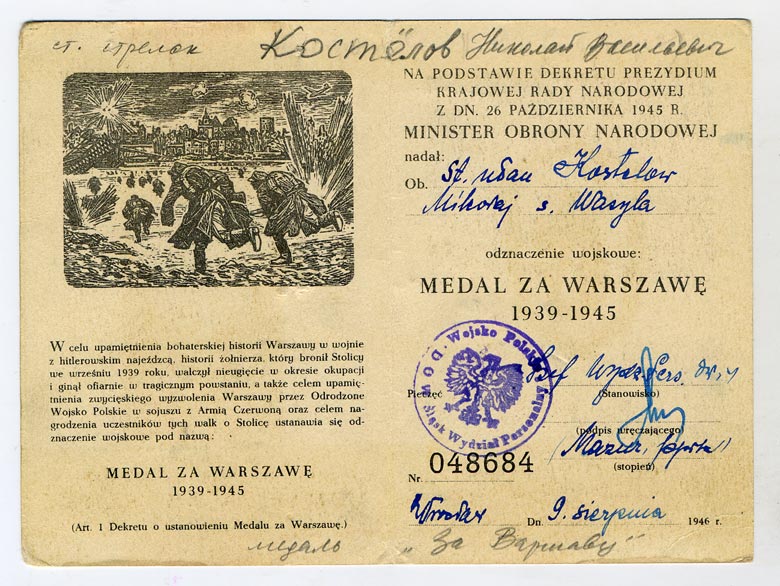 ст. стрелок Костёлов Николай Васильевич
W celu upamiętnienia bohaterskiej historii Warszawy w wojnie
z hitlerowskim najeźdźcą, historii żołnierza, który bronił Stolicy
we wrześniu 1939 roku, walczył nieugięcie w okresie okupacji
i ginął ofiarnie w tragicznym powstaniu, a także celem upamięt-
nienia zwycięskiego wyzwolenia Warszawy przez Odrodzone
Wojsko Polskie w sojuszu z Armią Czerwoną oraz celem na-
grodzenia uczestników tych walk o Stolicę ustanawia się od-
znaczenie wojskowe pod nazwą:
MEDAL ZA WARSZAWĘ
1939-1945
(Art. 1 Dekretu o ustanowieniu Medalu za Warszawę.)
NA PODSTAWIE DEKRETU PREZYDIUM
KRAJOWEJ RADY NARODOWEJ
Z DN. 26 PAŹDZIERNIKA 1945 R.
MINISTER OBRONY NARODOWEJ
nadał:
Ob. st. ułan Kostelow
Mikołaj s. Wasyla
odznaczenie wojskowe:
MEDAL ZA WARSZAWĘ
1939-1945
D. Wojsko Polskie
D O W Śląsk Wydział Personalny
Pieczęć
Szef Wydz. Pers.
(Stanowisko)
(podpis wręczającego)
Mazur,
(stopień)
Nr. 048684
Wrocław Dn. 9. sierpnia 1946 r.
медаль „За Варшаву"